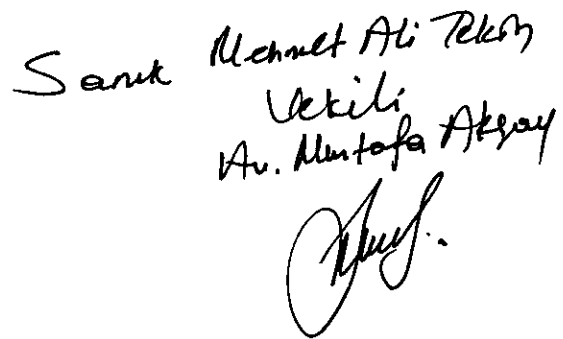 Sanık Mehmet Ali Tekin
Vekili
Av. Mustafa Aksoy